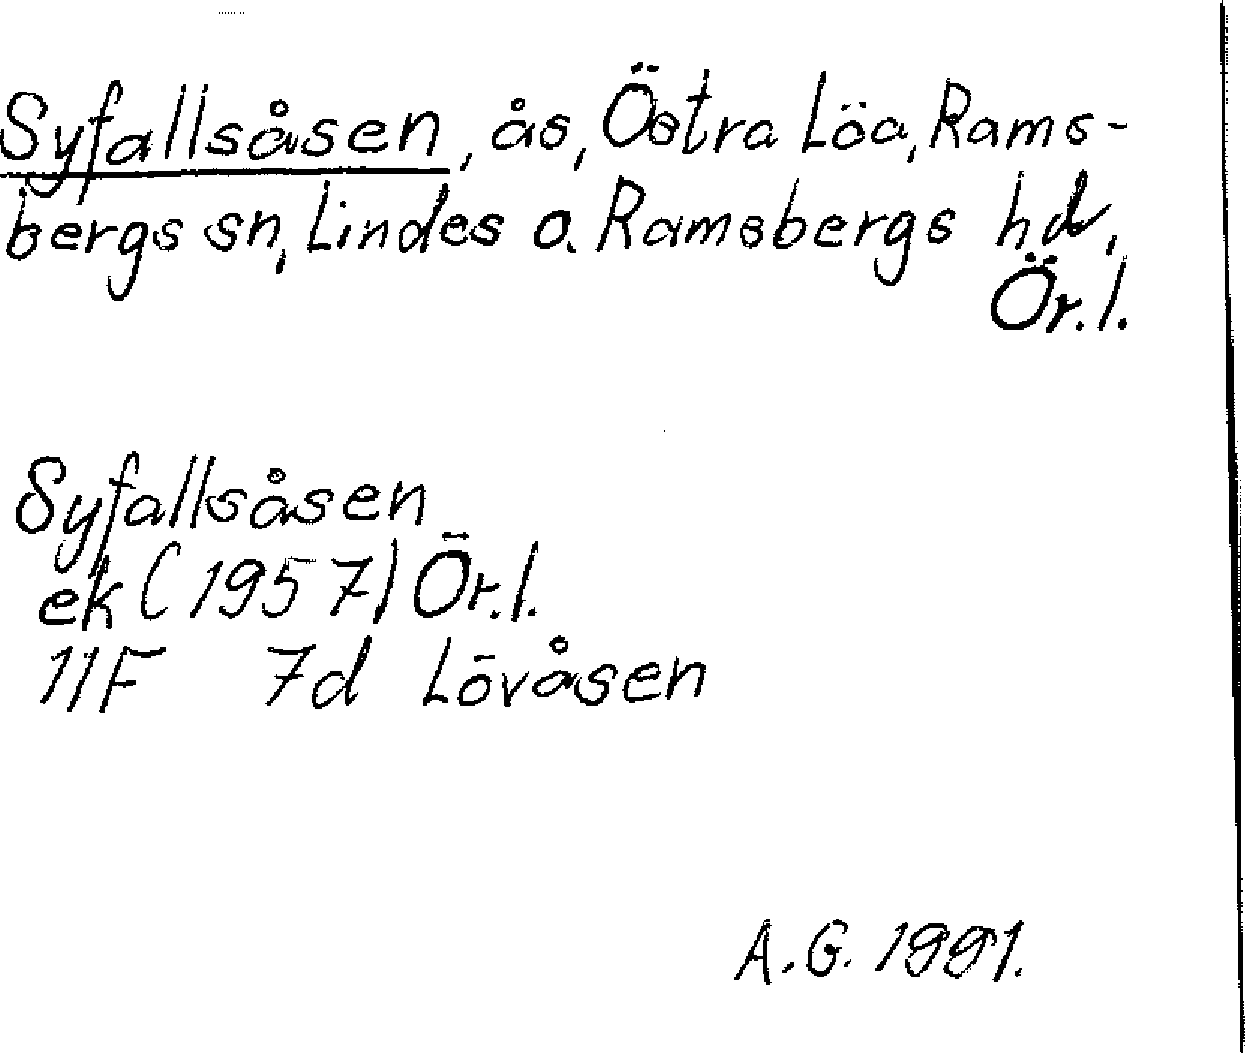 Syfallsåsen, ås, Östra Löa, Rams-
bergs sn, Lindes o. Ramsbergs hd,
Ör.l.
Syfallsåsen
ek (1957) Ör.l.
11F 7d Lövåsen
A.G. 1991.